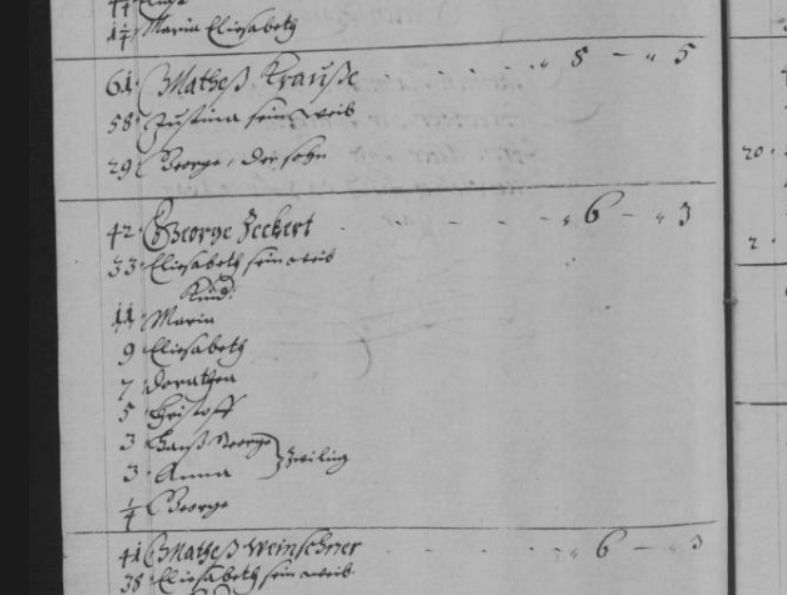 1/4 Maria Eliesabeth
61. Matheß Krauße . . . . . " 8 — " 5
58. Justina sein weib
29 George, der sohn
42. George Zeckert . - - - - " 6 — " 3
33. Eliesabeth sein weib
Kind:
11 Maria
9 Eliesabeth
7 Dorathea
5 Christoff
3 Hanß George } Zwiling
3. Anna
1/4 George
41 Matheß Weinschner . . . . " 6 — " 3
38 Eliesabeth sein weib.
20.
2.